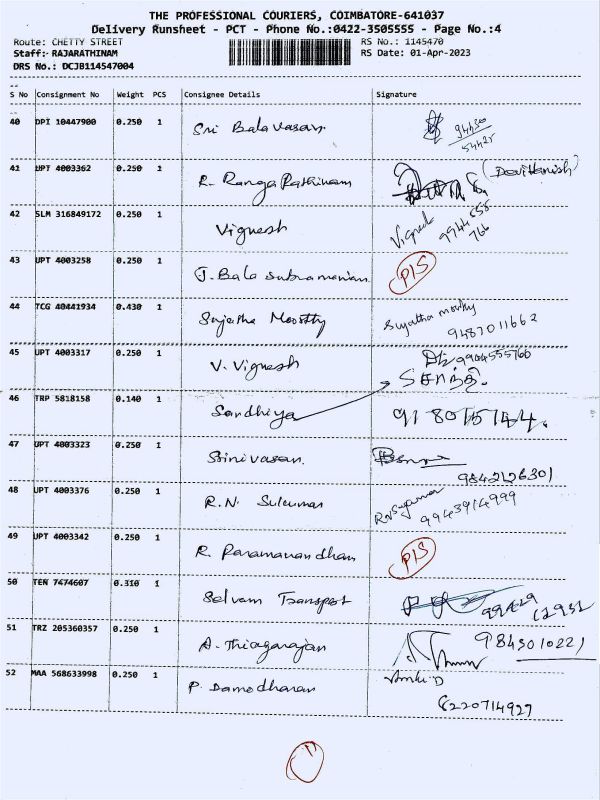 THE PROFESSIONAL COURIERS, COIMBATORE-641037
Delivery Runsheet - PCT - Phone No.:0422-3505555 - Page No.:4
Route: CHETTY STREET RS No.: 1145470
Staff:- RAJARATHINAM RS Date: 01-Apr-2023
DRS No.: DCJB114547004
S No Consignment No Weight PCS Consignee Details Signature
40 DPI 10447900 0.250 1 Sri Balavasan 94430
54425
41 UPT 4003362 0.250 1 R. Ranga Rathinam
42 SLM 316849172 0.250 1 Vignesh Vignesh 9944555
766
43 UPT 4003258 0.250 1 J. Bala Subramanian PIS
44 TCG 40441934 0.430 1 Sujatha Moorthy Sujatha moorthy
9487011662
45 UPT 4003317 0.250 1 V. Vignesh 9904555766
46 TRP 5818158 0.140 1 Sandhiya
47 UPT 4003323 0.250 1 Srinivasan.
9842126301
48 UPT 4003376 0.250 1 R.N. Sukumar
9943914999
49 UPT 4003342 0.250 1 R. Paramanandham PIS
50 TEN 7474607 0.310 1 Selvam Transport
51 TRZ 205360357 0.250 1 A. Thiagarajan 9843010221
52 MAA 568633998 0.250 1 P. Damodharan
8220714927